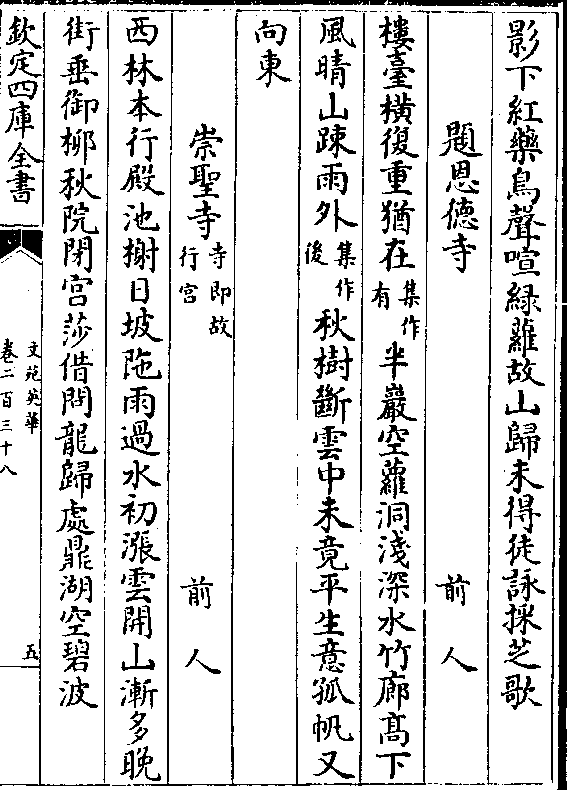 影下紅藥鳥聲喧緑蘿故山歸未得徒詠採芝歌
題恩德寺 前人
樓臺橫復重猶在集作有半巖空蘿洞淺深水竹廊髙下
風晴山踈雨外集作後秋樹斷雲中未竟平生意孤帆又
向東
崇聖寺寺即故行宮 前人
西林本行殿池榭日坡陁雨過水初漲雲開山漸多晚
街垂御柳秋院閉宫莎借問龍歸處鼎湖空碧波
欽定四庫全書
文苑英華
卷二百三十八
五